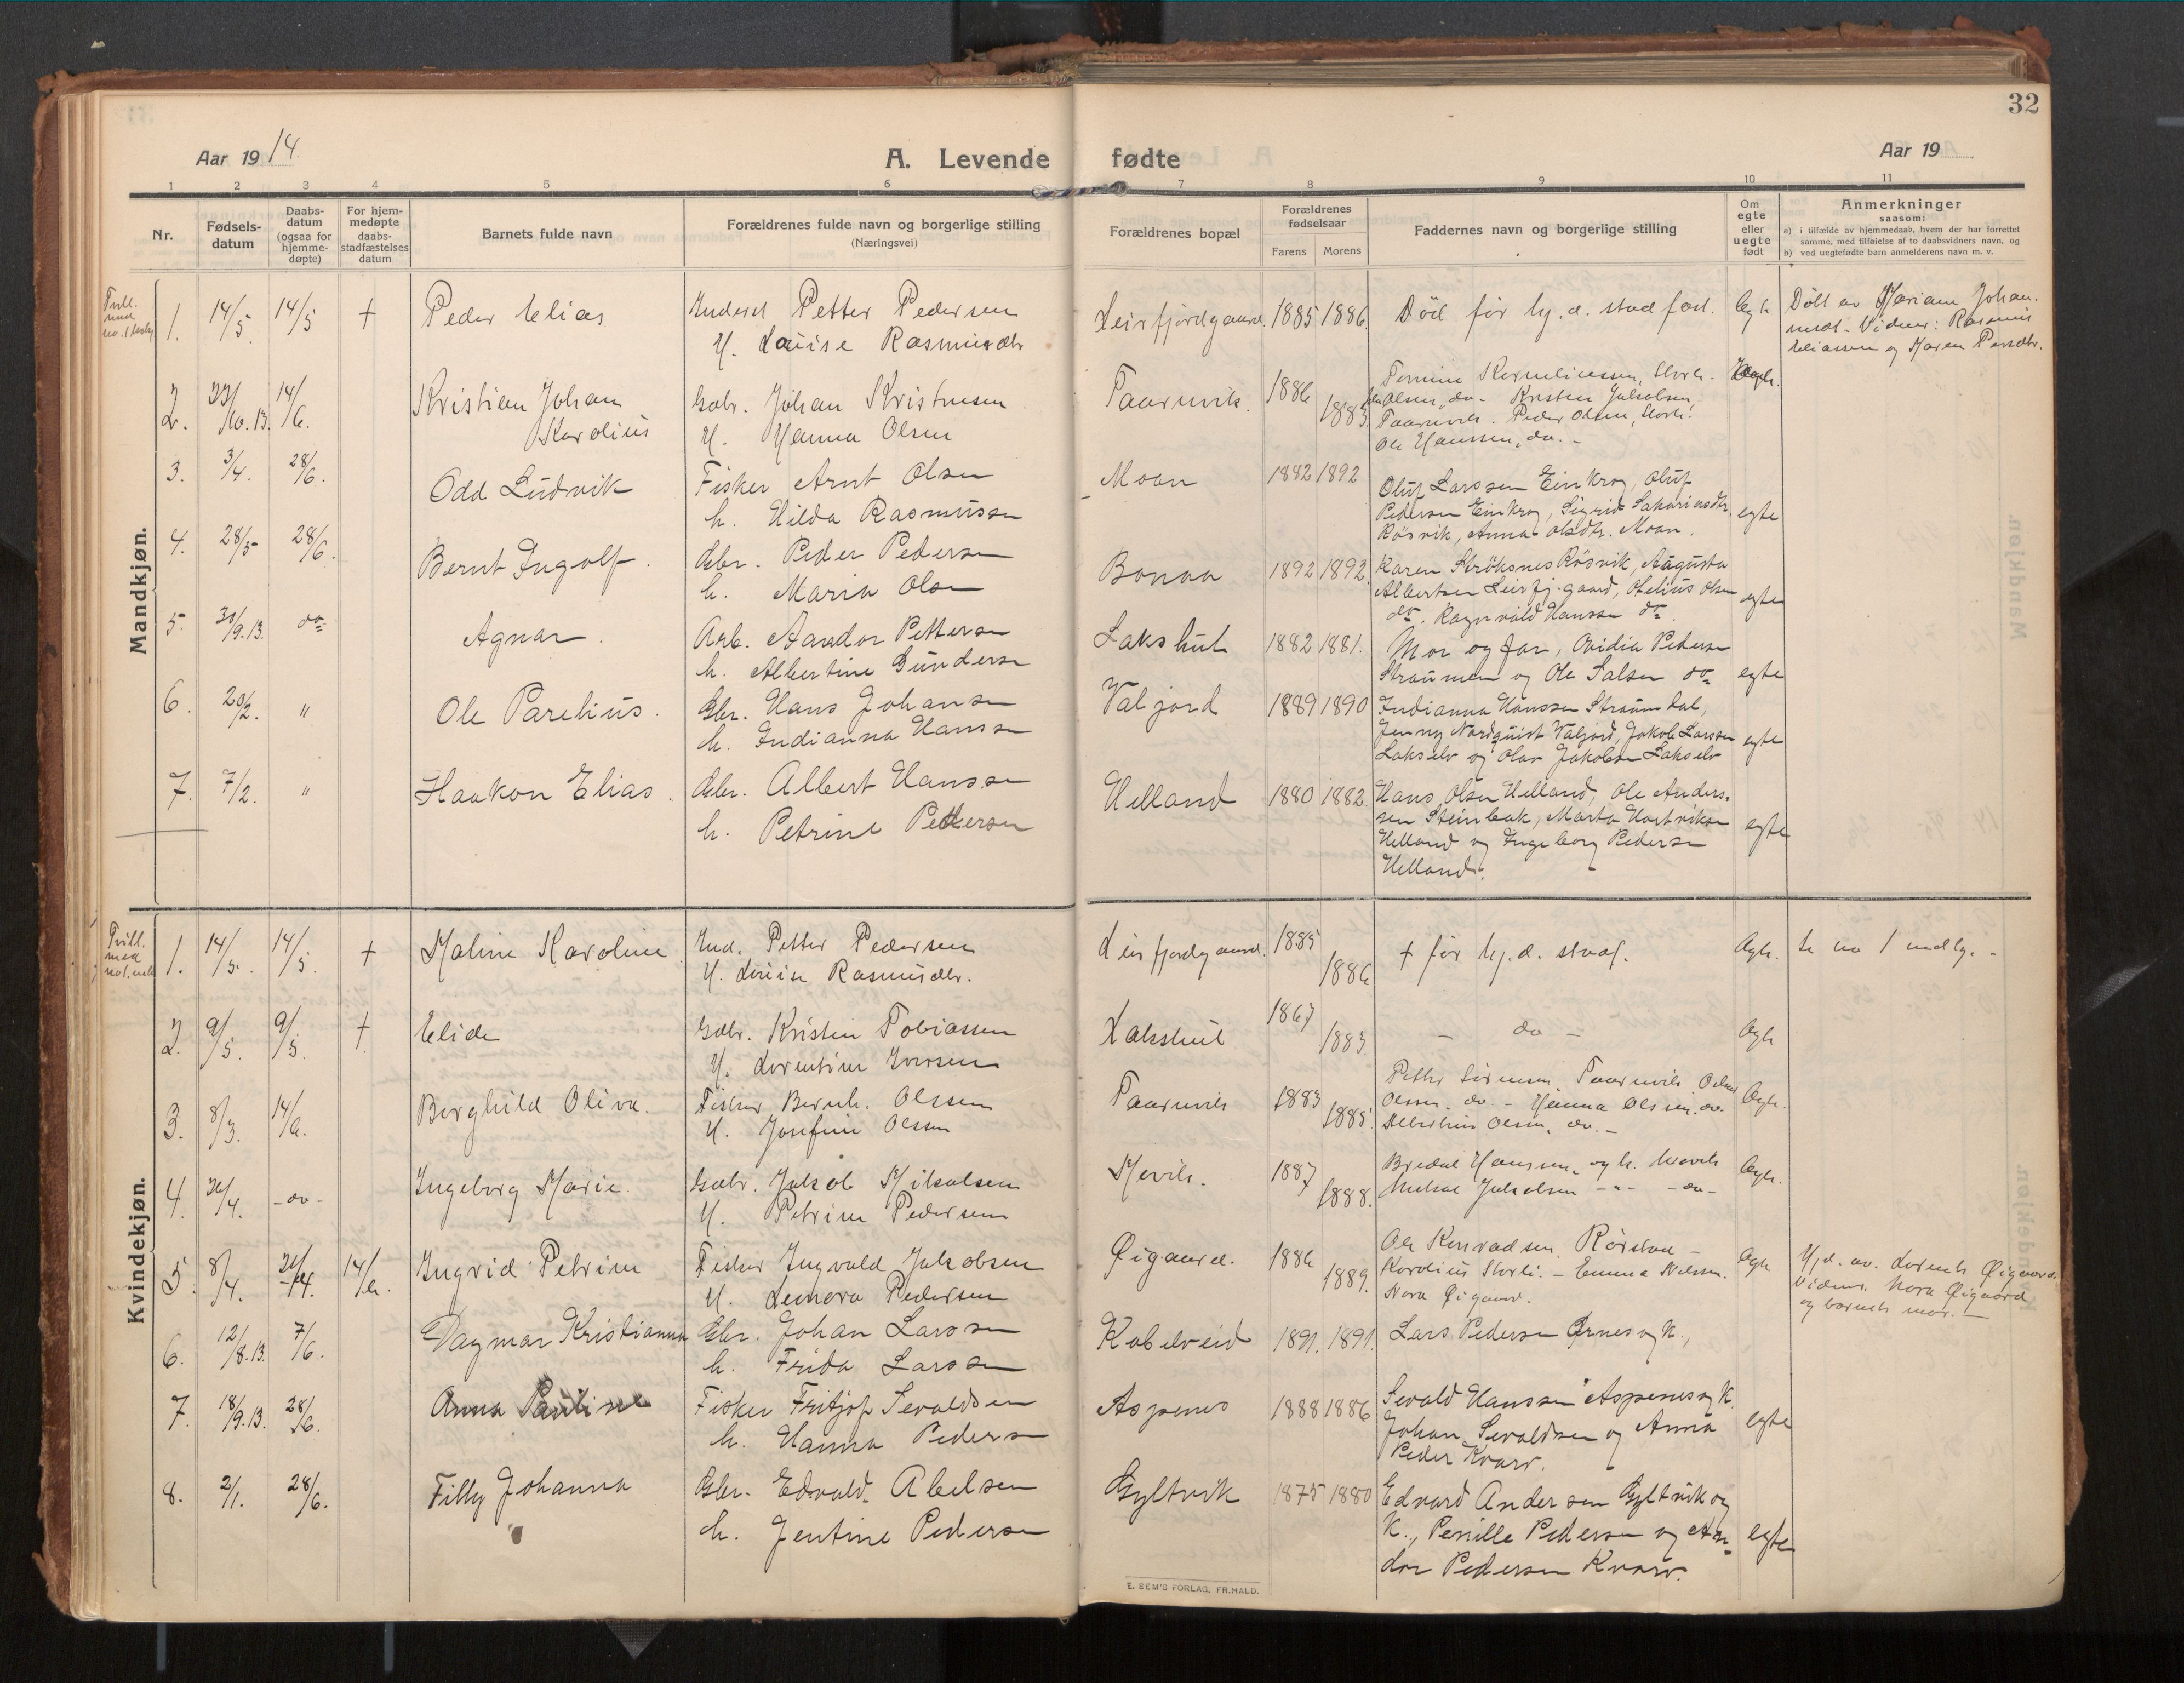 32
Aar 19 14.
A. Levende fødte
Aar 19
1 2 3 4 5 6 7 8 9 10 11
Nr.
Fødsels-
datum
Daabs-
datum
(ogsaa for
hjemme-
døpte)
For hjem-
medøpte
daabs-
stadfæstelses
datum
Barnets fulde navn
Forældrenes fulde navn og borgerlige stilling
(Næringsvei)
Forældrenes bopæl
Forældrenes
fødselsaar
Farens Morens
Faddernes navn og borgerlige stilling
Om
egte
eller
uegte
født
Anmerkninger
saasom:
a) i tilfælde av hjemmedaab, hvem der har forrettet
samme, med tilføielse af to daabsvidners navn, og
b) ved uegtefødte barn anmelderens navn m. v.
Mandkjøn.
1. 14/5. 14/5 † Peder Elias
Petter Pedersen
H. Louise Rasmusdtr
Leirfjordgaard. 1885 1886.
Død før hj. d. stadfæst. Egte
Døbt av Mariane Johan-
Vidner: Rasmus
Eliassen og Maren
2. 23/10.13. 14/6. Kristian Johan
Karolius
Gbr. Johan Kristensen
H. Hanna Olsen
Taarnvik. 1886 1883.
Olsen, do - Kristen Jakobsen,
Taarnvik. Peder Olsen,
Ole Hanssen, do. -
3. 3/4. 28/6. Odd Ludvik
Fisker Arnt Olsen
h. Hilda Rasmussen
Moan 1882 1892
Oluf Larssen Einkrog, Oluf
Pedersen Einkrog, Sigrid Sakariasdtr.
Røsvik, Anna Olsdtr. Moan. egte
4. 28/5 28/6. Bernt Ingolf.
Gbr. Peder Pedersen
h. Maria Olsen
Bonaa 1892 1892.
Karen Strøksnes Røsvik, Augusta
Albertsen Leirfj.gaard, Otelius Olsen
do. Ragnvald Hanssen do. egte
5. 30/9.13. do Agnar.
Arb. Aandor Pettersen
h. Albertine Gundersen
Lakshul 1882 1881.
Mor og far, Ovidia Pedersen
Straumen og Ole Salsen do egte
6. 20/2. " Ole Parelius.
Gbr. Hans Johansen
h. Indianna Hanssen
Valjord 1889 1890
Indianna Hanssen Straumdal,
Jenny Nordquist Valjord, Jakob Larssen
Lakselv og Olav Jakobsen Lakselv egte
7. 7/2. " Haakon Elias.
Gbr. Albert Hanssen
h. Petrine Pettersen
Helland 1880 1882.
Hans Olsen Helland, Ole Anders-
sen Steinbak, Marta Hartviksen
Helland og Ingeborg Pedersen
Helland. egte
Kvindekjøn.
Tvill.
med
1. 14/5. 14/5. † Maline Karoline
Ind. Petter Pedersen
H. Louise Rasmusdtr.
Leirfjordgaard. 1885 1886
† før hj. d. stadf. Egte. Se no 1 mdkj. -
2. 9/5. 9/5. † Elide
Gbr. Kristen Tobiassen
H. Lorentine Iversen
Lakshul 1867 1883.
- do - Egte
3. 8/3. 14/6. Borghild Oliva.
Fisker Bernh. Olssen
H. Josefine Olssen
Taarnvik 1883 1885.
Petter Sørensen, Taarnvik
Olssen, do. - Hanna Olssen, do.
Olssen, do. - Egte.
4. 26/4. - do - Ingeborg Marie.
Gbr. Jakob Mikalsen
H. Petrine Pedersen
Mevik. 1887 1888.
Bredal Hanssen og k. Mevik
Mikal Jakobsen - " - - do - Egte.
5. 8/4. 14/6. Ingrid Petrine
Fisker Ingvald Jakobsen
H. Lenora Pedersen
Øigaard. 1886 1889.
Ole Konradsen, Rørstad -
Karolius Storli. - Emma Nilssen.
Nora Øigaard. Egte
Hjd. av. Lorents Øigaard.
Vidner. Nora Øigaard
og barnets mor. -
6. 12/8.13. 7/6. Dagmar Kristianna
Gbr. Johan Larssen
h. Frida Larssen
Kobelveid 1891. 1891.
Lars Pedersen Ørnes og k.,
7. 18/9.13. 28/6. Anna Pauline
Fisker Fritjof Sevaldsen
h. Hanna Pedersen
Aspenes 1888 1886
Sevald Hanssen Aspenes og k.
Johan Sevaldsen og Anna
Peder Kvarv. egte
8. 2/1. 28/6. Tilly Johanna
Gbr. Edvald Abelsen
h. Jentine Pedersen
Gyltvik 1875 1880
Edvard Andersen Gyltvik og
k., Pernille Pedersen og An-
dor Pedersen Kvarv. egte
E. SEM'S FORLAG, FR.HALD.